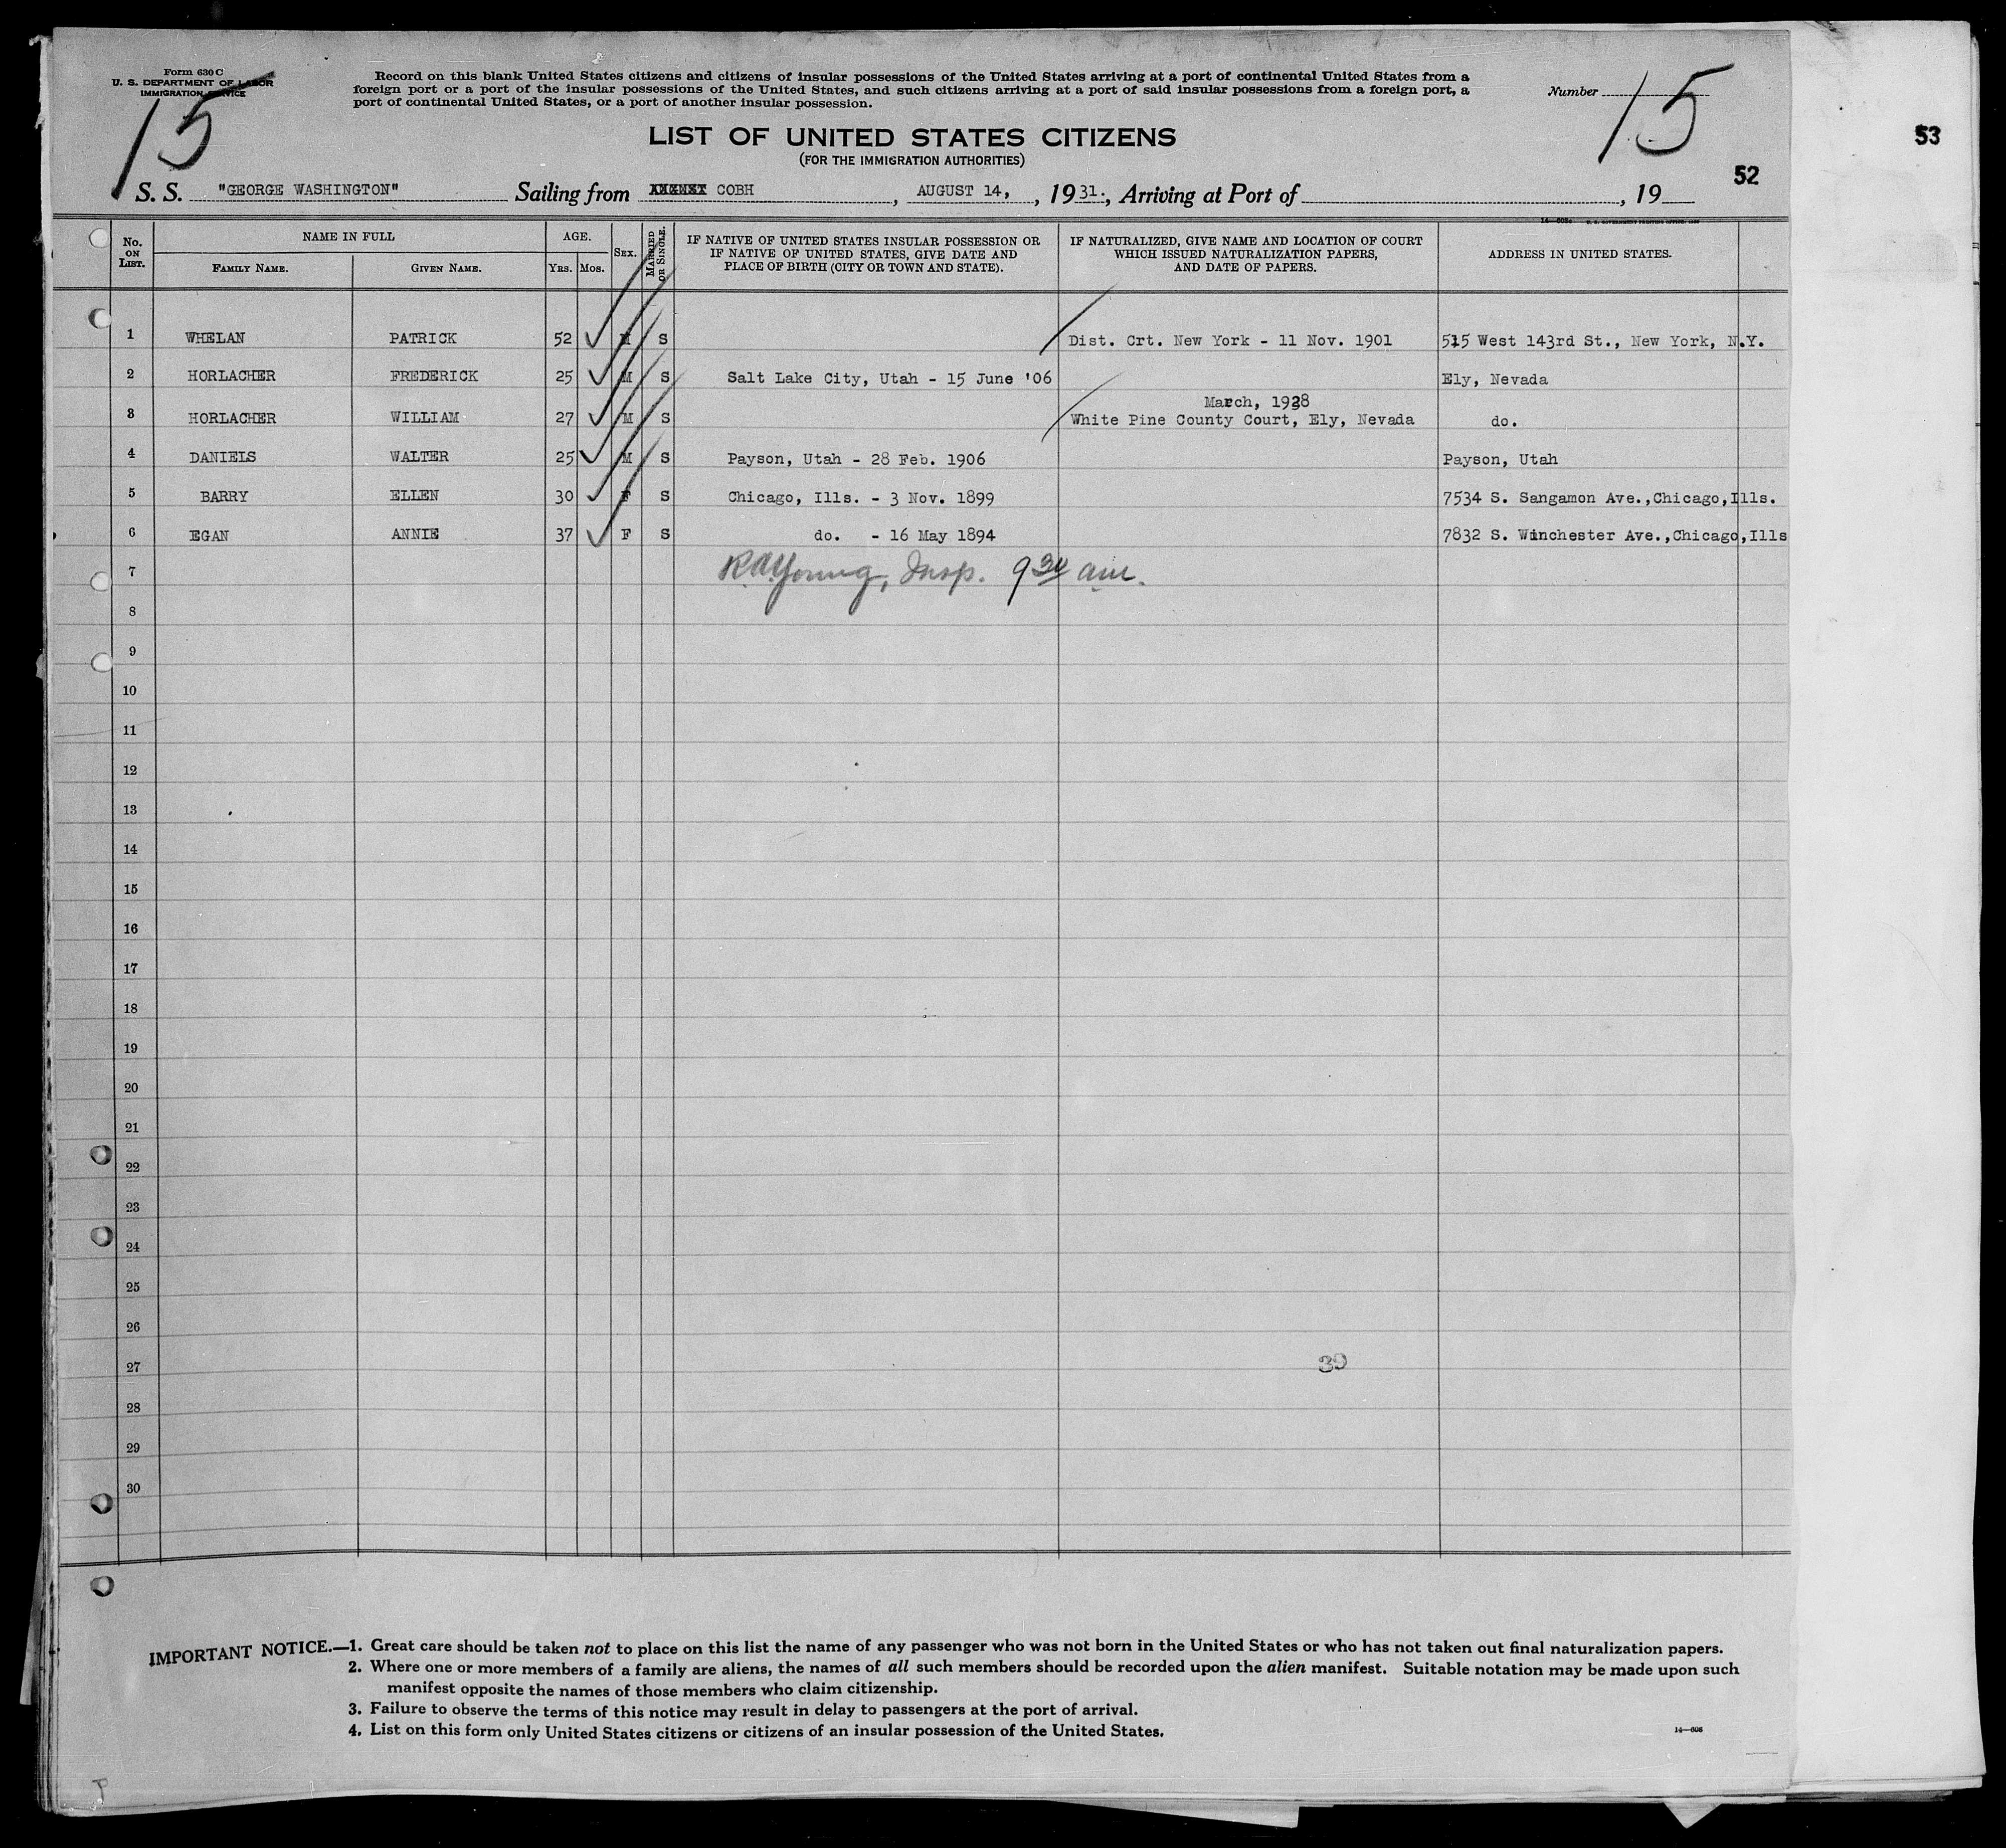 Form 630 C
U. S. DEPARTMENT OF LABOR
IMMIGRATION SERVICE
15
Record on this blank United States citizens and citizens of insular possessions of the United States arriving at a port of continental United States from a
foreign port or a port of the insular possessions of the United States, and such citizens arriving at a port of said insular possessions from a foreign port, a
port of continental United States, or a port of another insular possession.
Number 15
53
LIST OF UNITED STATES CITIZENS
(FOR THE IMMIGRATION AUTHORITIES)
52
S. S. "GEORGE WASHINGTON" Sailing from COBH, AUGUST 14, , 1931., Arriving at Port of , 19
No. ON LIST. NAME IN FULL FAMILY NAME. GIVEN NAME. AGE. YRS. MOS. SEX. MARRIED OR SINGLE. IF NATIVE OF UNITED STATES INSULAR POSSESSION OR IF NATIVE OF UNITED STATES, GIVE DATE AND PLACE OF BIRTH (CITY OR TOWN AND STATE). IF NATURALIZED, GIVE NAME AND LOCATION OF COURT WHICH ISSUED NATURALIZATION PAPERS, AND DATE OF PAPERS. ADDRESS IN UNITED STATES.
1 WHELAN PATRICK 52 M S Dist. Crt. New York - 11 Nov. 1901 515 West 143rd St., New York, N.Y.
2 HORLACHER FREDERICK 25 M S Salt Lake City, Utah - 15 June '06 Ely, Nevada
March, 1928
3 HORLACHER WILLIAM 27 M S White Pine County Court, Ely, Nevada do.
4 DANIELS WALTER 25 M S Payson, Utah - 28 Feb. 1906 Payson, Utah
5 BARRY ELLEN 30 F S Chicago, Ills. - 3 Nov. 1899 7534 S. Sangamon Ave.,Chicago,Ills.
6 EGAN ANNIE 37 F S do. - 16 May 1894 7832 S. Winchester Ave.,Chicago,Ills
7 R.A. Young, Insp. 9 30 am.
8
9
10
11
12
13
14
15
16
17
18
19
20
21
22
23
24
25
26
27 39
28
29
30
IMPORTANT NOTICE.—1. Great care should be taken not to place on this list the name of any passenger who was not born in the United States or who has not taken out final naturalization papers.
2. Where one or more members of a family are aliens, the names of all such members should be recorded upon the alien manifest. Suitable notation may be made upon such
manifest opposite the names of those members who claim citizenship.
3. Failure to observe the terms of this notice may result in delay to passengers at the port of arrival.
4. List on this form only United States citizens or citizens of an insular possession of the United States.